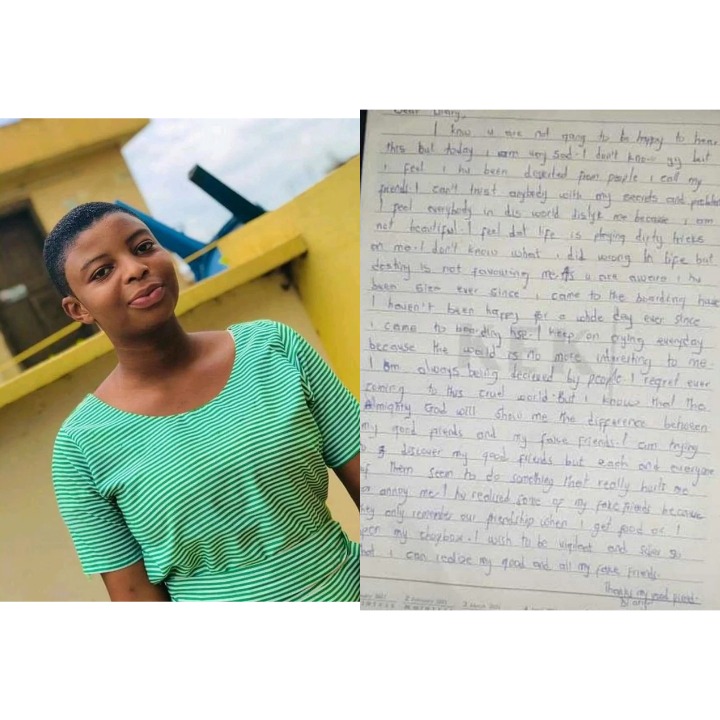 Dear Diary,
I know u are not going to be happy to hear
this but today i am very sad. I don't know yy but
i feel i hv been diserted from people i call my
friends. I can't trust anybody with my secrets and problems
I feel everybody in dis world dislyk me because i am
not beautiful. I feel dat life is playing dirty tricks
on me. I don't know what i did wrong in life but
destiny is not favouring me. As u are aware i hv
been ever since i came to the boarding hse
I haven't been happy for a whole day ever since
i came to boarding hse. I keep on crying everyday
because the world is no more interesting to me.
I am always being decieved by people I regret ever
coming to this cruel world. But i know that the
Almighty God will show me the difference between
my good friends and my fake friends. I am trying
to discover my good friends but each and everyone
of them seem to do something that really hurts me
or annoy me. I hv realised some of my fake friends because
they only remember our friendship when i get food or i
open my chopbox. I wish to be vigilant and so
that i can realise my good and all my fake friends.
Thanks my good friend.
Diary